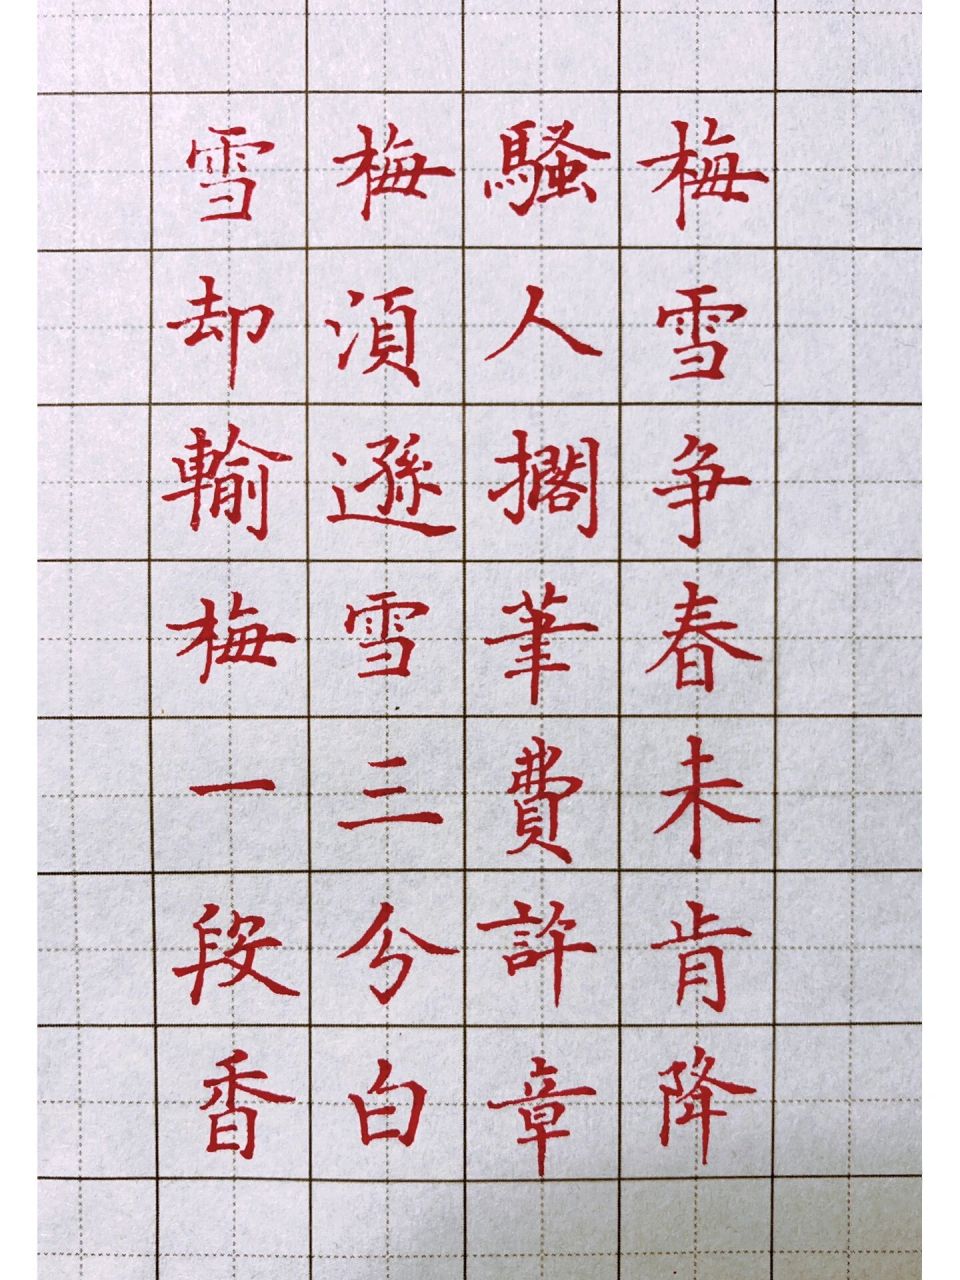 梅雪争春未肯降
騷人擱筆費許章
梅湏遜雪三分白
雪却輸梅一段香